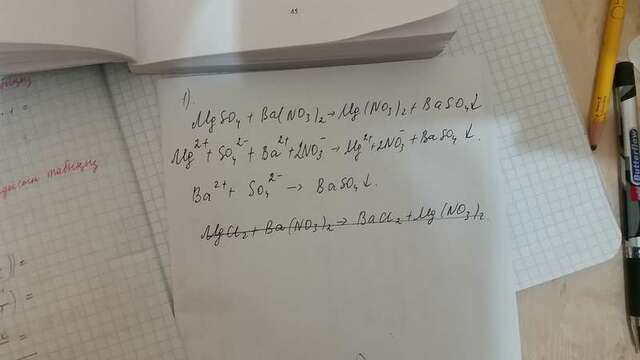 11
1).
MgSO₄ + Ba(NO₃)₂ → Mg(NO₃)₂ + BaSO₄↓
Mg²⁺ + SO₄²⁻ + Ba²⁺ + 2NO₃⁻ → Mg²⁺ + 2NO₃⁻ + BaSO₄↓.
Ba²⁺ + SO₄²⁻ → BaSO₄↓.
MgCl₂ + Ba(NO₃)₂ → BaCl₂ + Mg(NO₃)₂
табыңыз
Butterflow